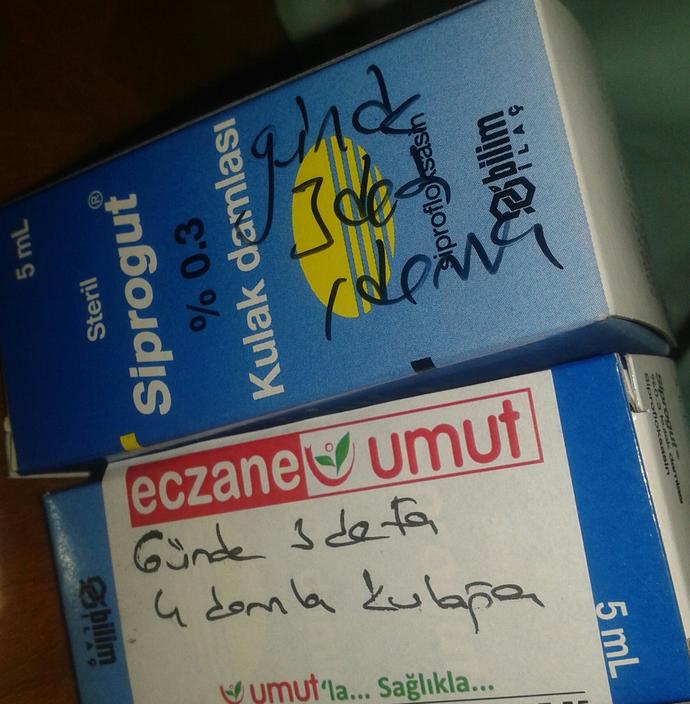 5 mL
Steril
Siprogut®
% 0.3
Kulak damlası
siprofloksasin
bilim
İLAÇ
eczane umut
Günde 3 defa
4 damla kulağa
umut'la... Sağlıkla...
bilim
İLAÇ
5 mL